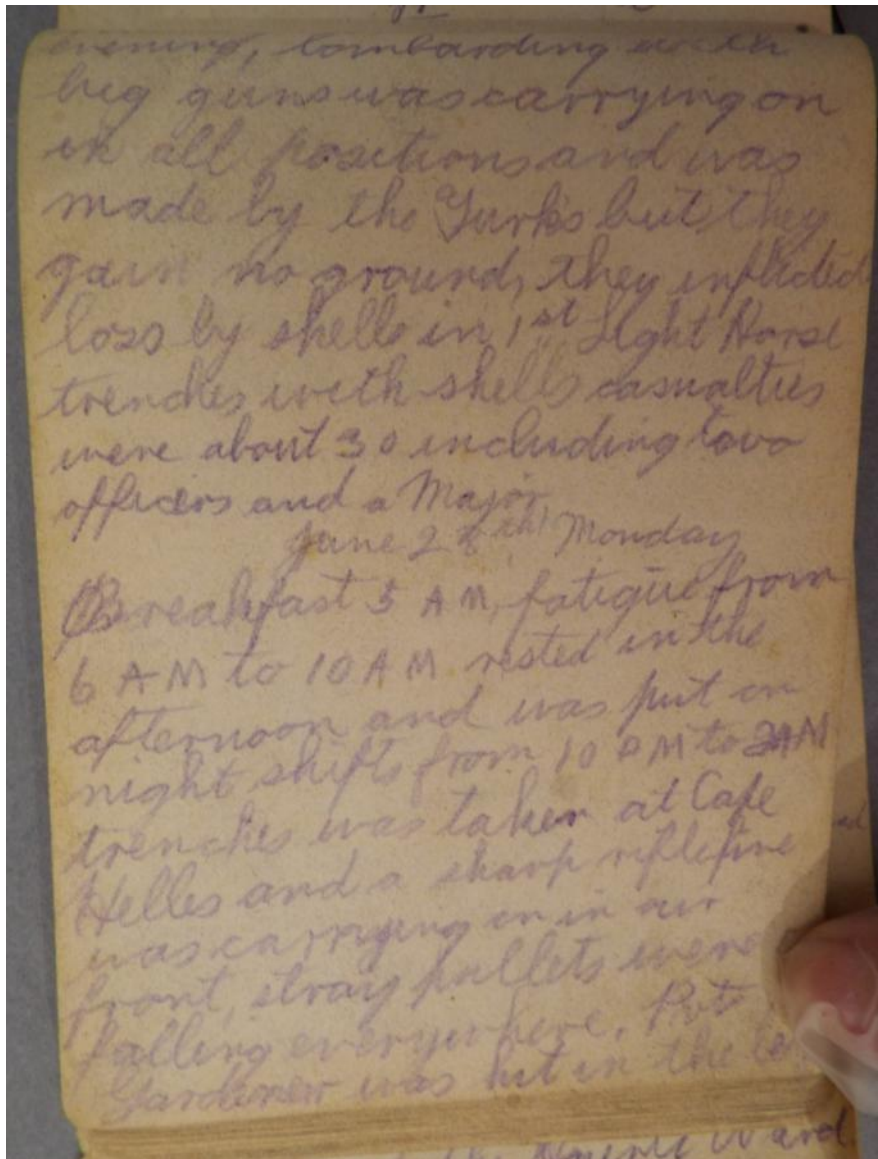 evening, bombarding with
big guns was carrying on
in all positions and was
made by the Turks but they
gain no ground, they inflicted
loss by shells in 1st Light Horse
trenches with shells casualties
were about 30 including two
officers and a Major
June 28th Monday
Breakfast 5 AM, fatigue from
6 AM to 10 AM rested in the
afternoon and was put on
night shifts from 10 PM to 2 AM
trenches was taken at Cape
Helles and a sharp riflefire
was carrying on in our
front, stray bullets were
falling everywhere. Pvt
Gardener was hit in the